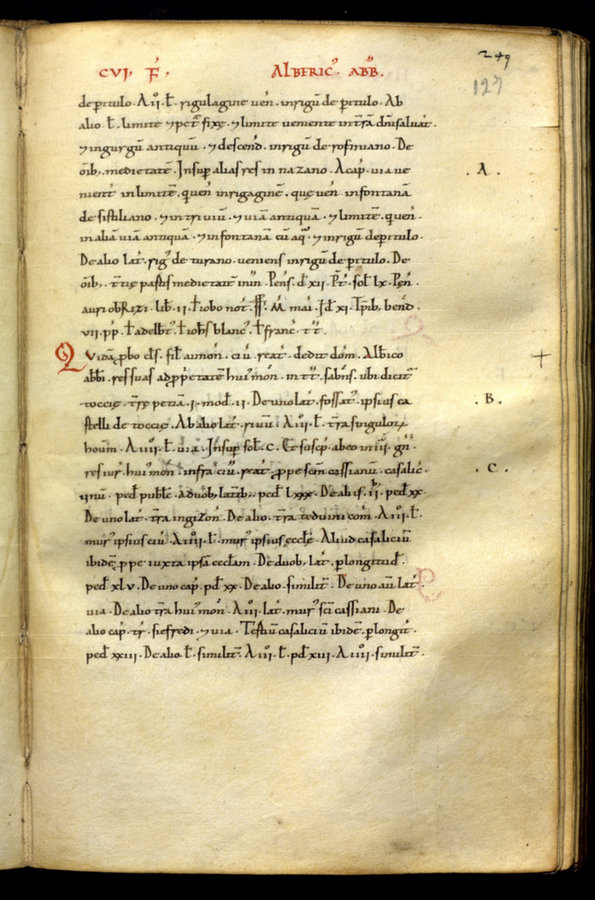 249
127
CVI. F. ALBERIC. ABB.
de ptulo. A IIII. t. rigulagine uen. inrigu de ptulo. Ab
alio. t. limite et pet fixe. et limite ueniente intra dni saluat.
et ingurgu antiquu. et descend. inrigu de rofiniano. De
oib. medietate. Insup alias res in nazano. A cap. uia ue
nient inlimite. quen inrigagine. que uen infontana
de sistiliano. et intriuiu. et uia antiqua. et limite. quen.
in alia uia antiqua. et infontana cu aq. et inrigu de ptulo.
De alio lat. rig de turano. ueniens inrigu de ptulo. De
oib. medietate in. Pens. d XII. Pt. sol LX. Pen.
auri obrizi. lib. II. t iobo not. M mai. Id XI. Tpib, bend.
VII. pp. t adelbt. t iohs blanc. t franc. tt.
Quida pbo cls. fil aumon. ciu reat. dedit dom. Albico
abbi. res suas ad ppetate hui mon. in tt. sabns. ubi dicit
toccie. tre petia. I. mod. II. De uno lat. fossat ipsius ca
stelli de toccie. Ab alio lat. riuu. A III. t. tra singulor
homin. A IIII. t. uia. Insup sol. C. Et suscp. ab eo in III. gn.
res iur hui mon. infra ciu reat. ppe scm cassianu. casalic.
ped public. a duob, latib, ped LXXX. De aliis. II. ped XX.
De uno lat. tra ingizon. De alio. tra teduini com. A III. t.
mur ipsius ciu. A IIII. t. mur ipsius eccle. Aliud casaliciu
ibide ppe iuxta ipsa ecclam. De duob, lat. p longitud.
ped XLV. De uno cap. pd XX. De alio. similit. De uno au lat.
uia. De alio tra hui mon. A III. lat. mur sci cassiani. De
alio cap. tr. siefredi. et uia. Tertiu casaliciu ibide. p longit.
ped XXIII. De alio. t. similit. A III. t. pd XIII. A IIII. similit.
A.
B.
C.